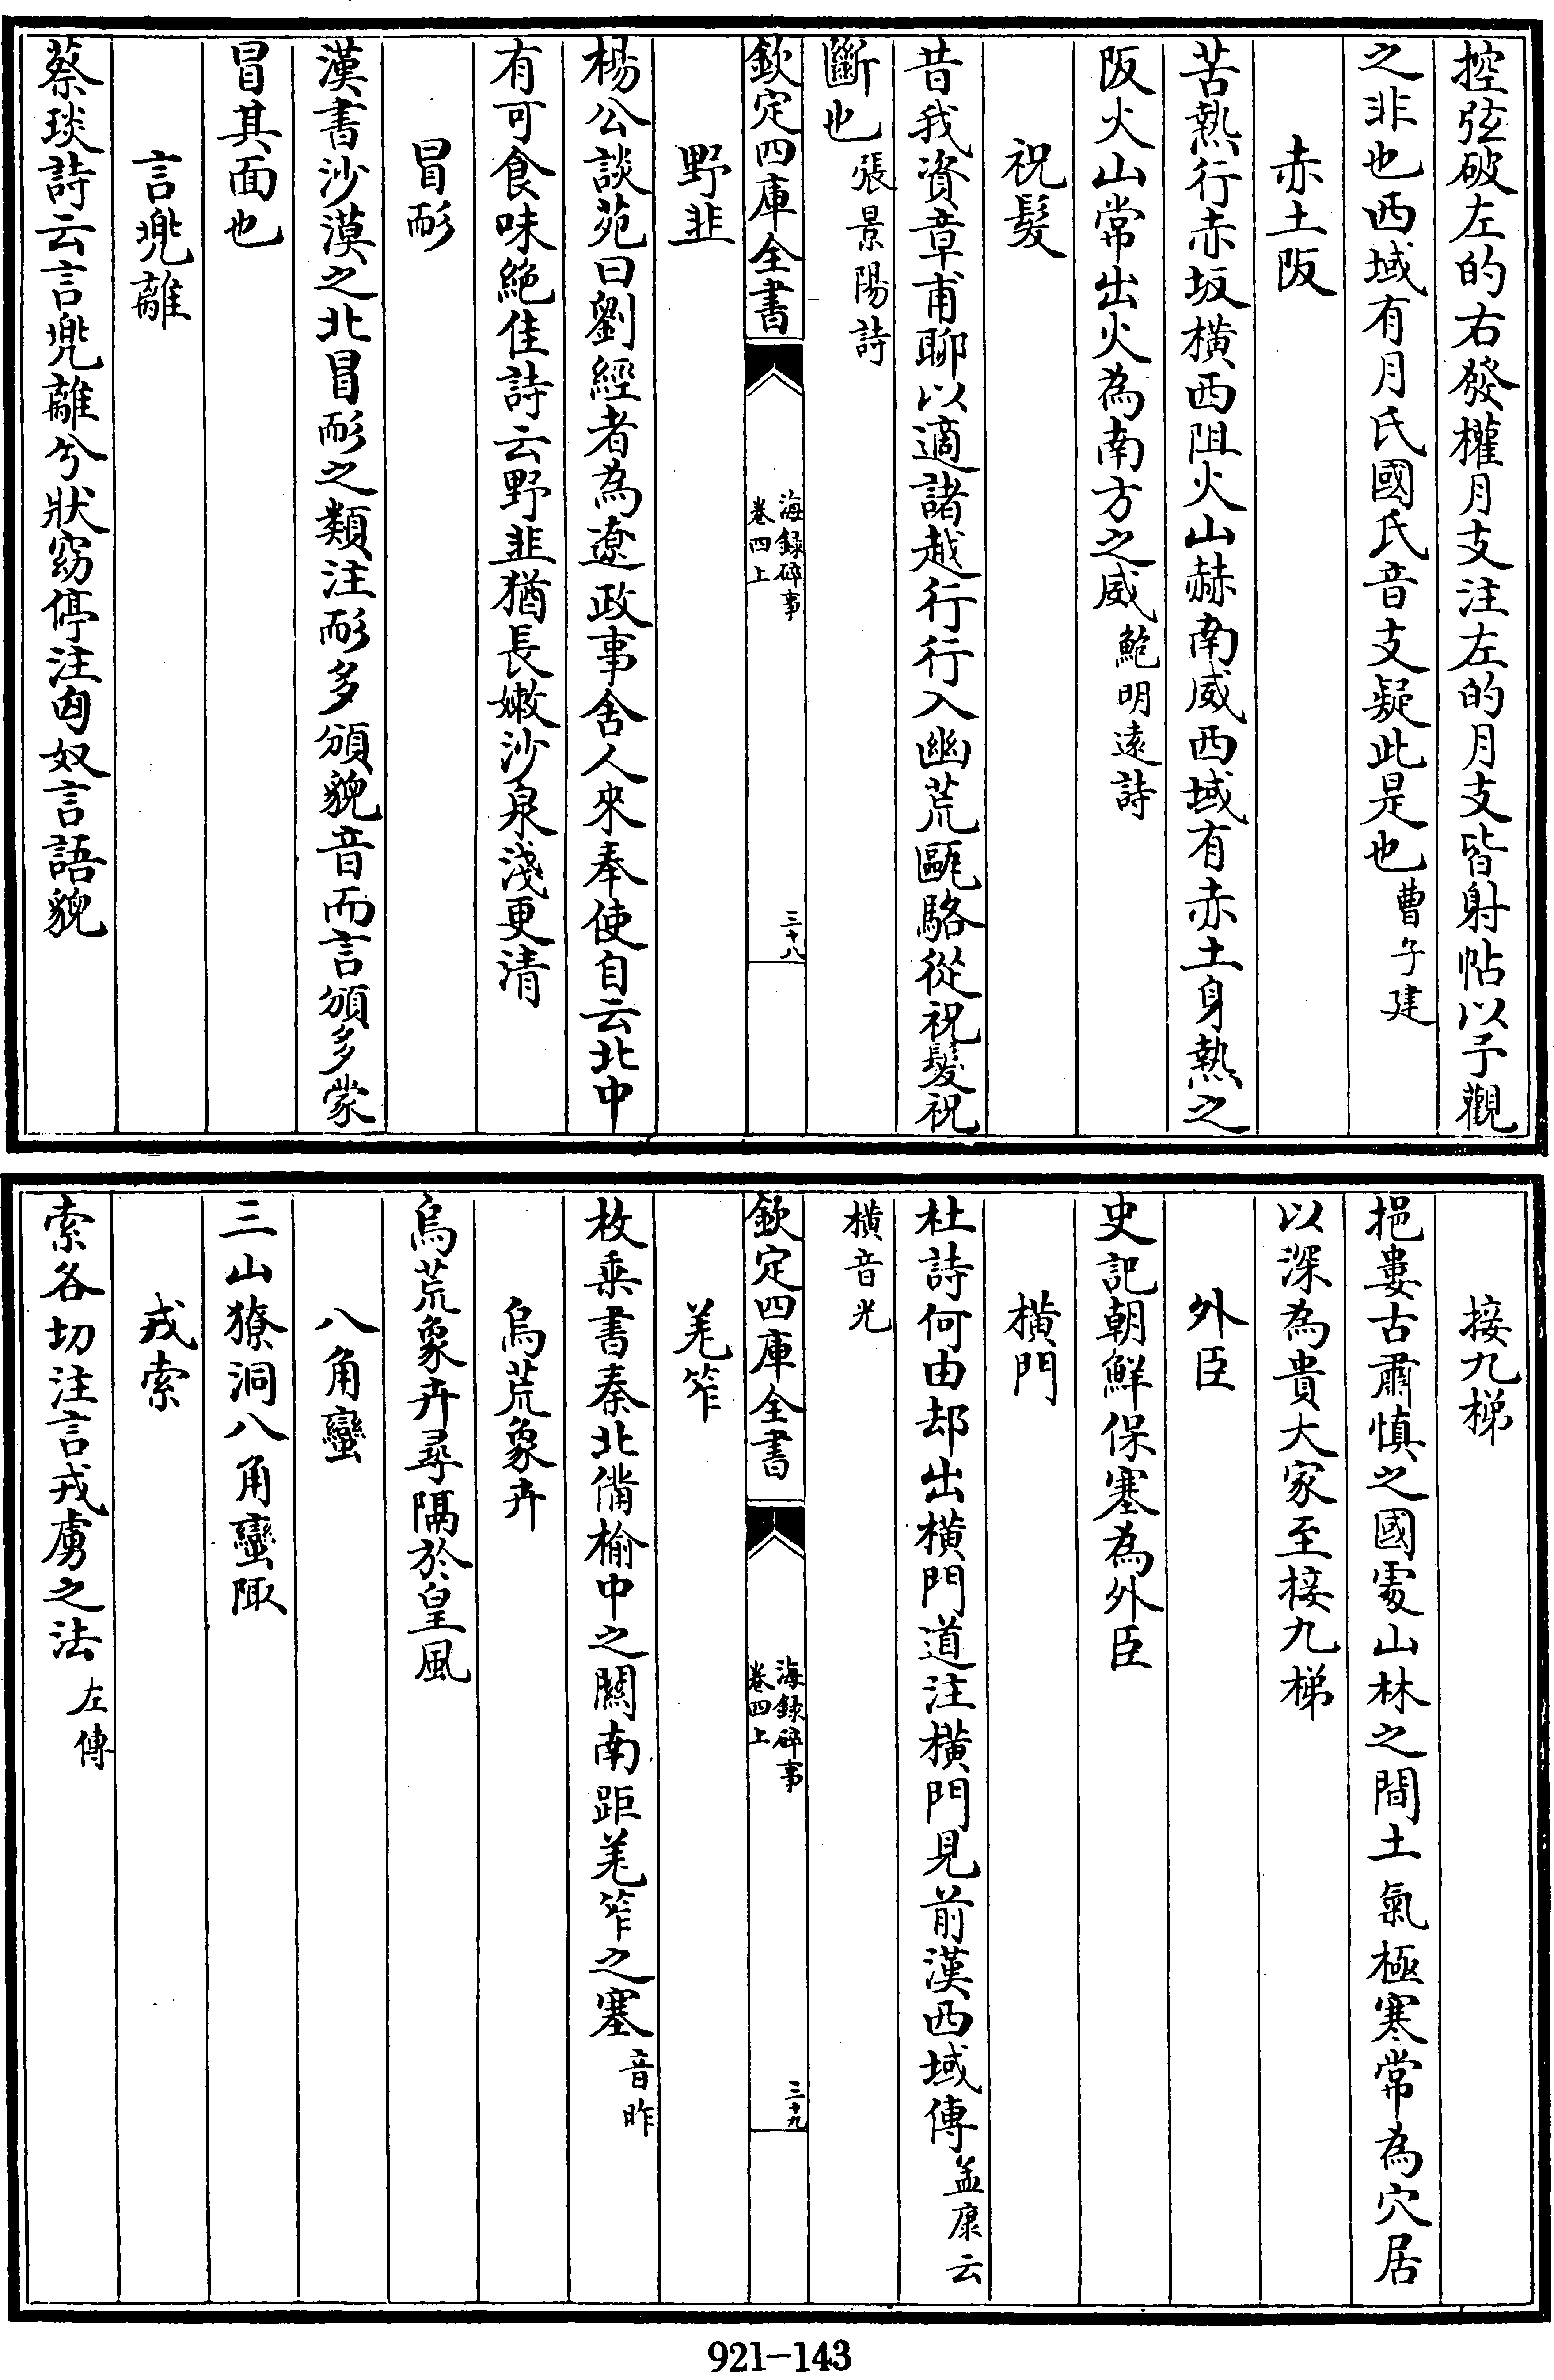 控弦破左的右發權月支注左的月支皆射帖以予觀
之非也西域有月氏國氏音支疑此是也曹子建
赤土阪
苦熱行赤坂橫西阻火山赫南威西域有赤土身熱之
阪火山常出火為南方之威鮑明遠詩
祝髮
昔我資章甫聊以適諸越行行入幽荒甌駱從祝髮祝
斷也張景陽詩
欽定四庫全書
海録碎事
卷四上
三十八
野韭
楊公談苑曰劉經者為遼政事舍人來奉使自云北中
有可食味絶佳詩云野韭猶長嫩沙泉淺更清
冒耏
漢書沙漠之北冒耏之類注耏多頒貌音而言頒多蒙
冒其面也
言兠離
蔡琰詩云言兠離兮狀窈停注匈奴言語貌
接九梯
挹婁古肅慎之國䖏山林之間土氣極寒常為穴居
以深為貴大家至接九梯
外臣
史記朝鮮保塞為外臣
橫門
杜詩何由却出橫門道注橫門見前漢西域傳孟康云
橫音光
欽定四庫全書
海録碎事
卷四上
三十九
羌筰
枚乗書秦北備榆中之闗南距羌筰之塞音昨
烏荒象卉
烏荒象卉尋隔於皇風
八角蠻
三山獠洞八角蠻陬
戎索
索各切注言戎虜之法左傳
921-143